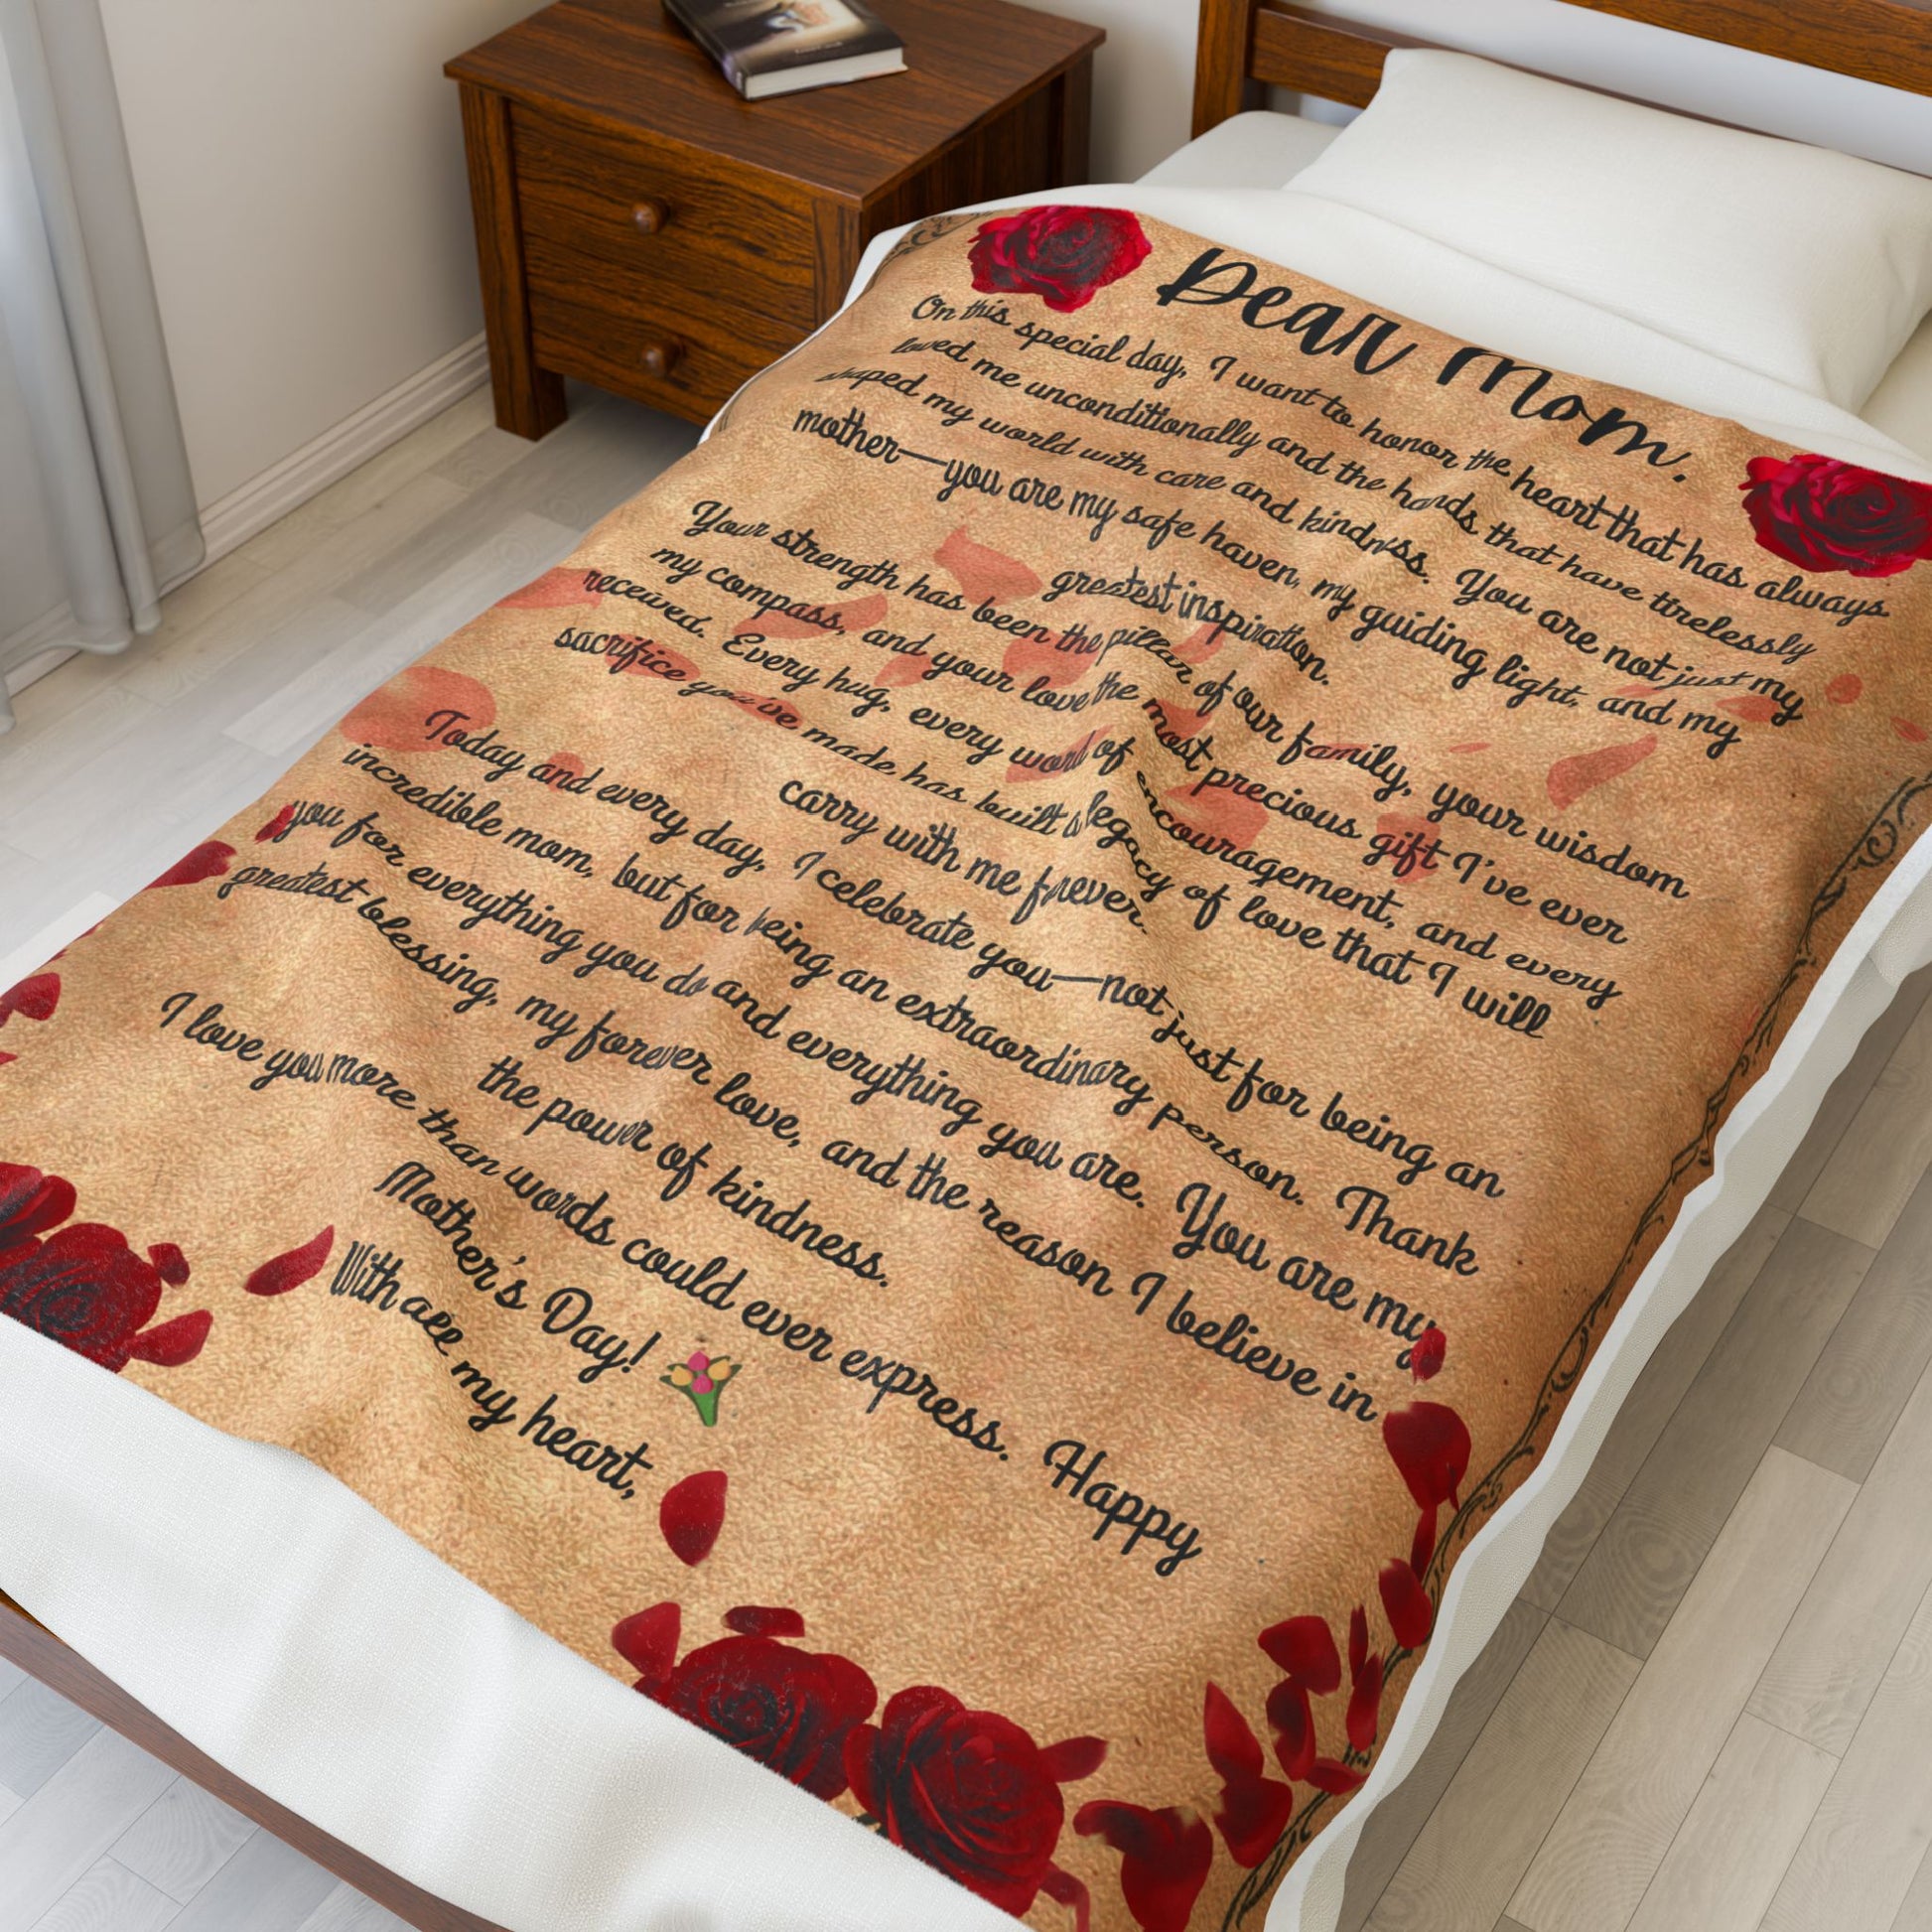 Dear Mom,
On this special day, I want to honor the heart that has always
loved me unconditionally and the hands that have tirelessly
shaped my world with care and kindness. You are not just my
mother—you are my safe haven, my guiding light, and my
greatest inspiration.
Your strength has been the pillar of our family, your wisdom
my compass, and your love the most precious gift I've ever
received. Every hug, every word of encouragement, and every
sacrifice you've made has built a legacy of love that I will
carry with me forever.
Today and every day, I celebrate you—not just for being an
incredible mom, but for being an extraordinary person. Thank
you for everything you do and everything you are. You are my
greatest blessing, my forever love, and the reason I believe in
the power of kindness.
I love you more than words could ever express. Happy
Mother's Day! 💐
With all my heart,